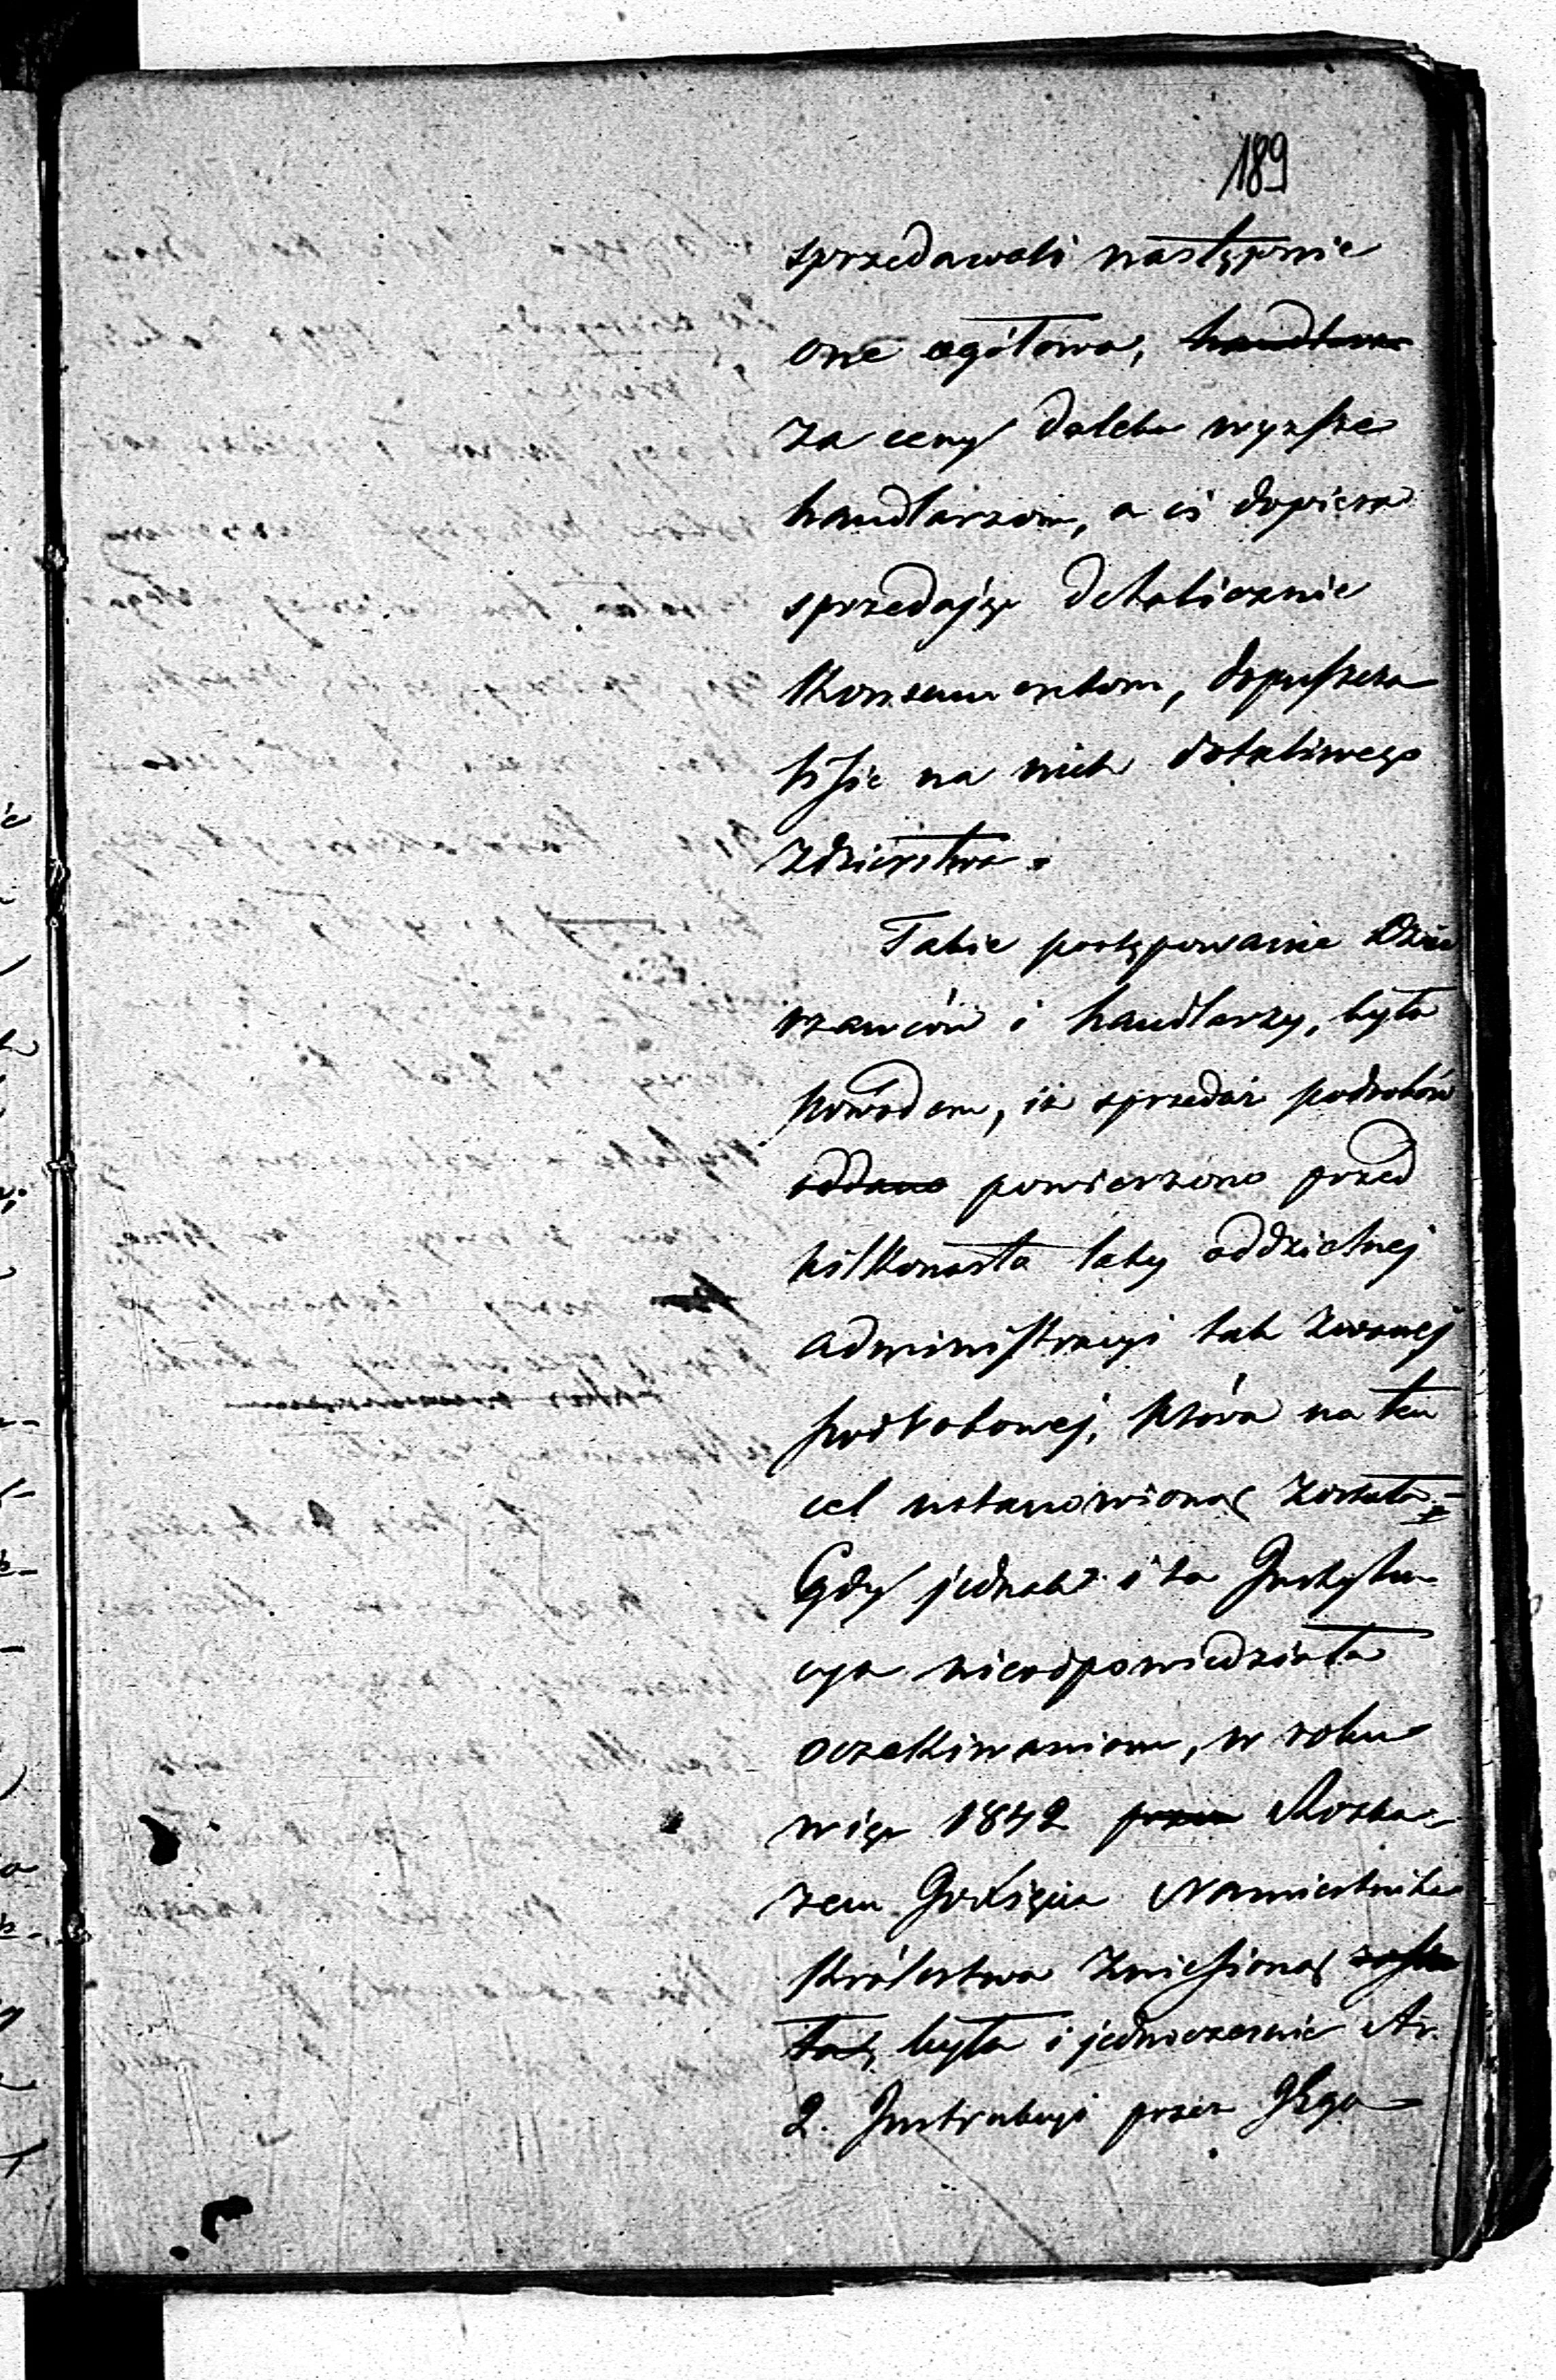 189
sprzedawali następnie
one ogółowo, handlarzom
za ceny daleko wyższe
handlarzom, a ci dopiero
sprzedając detalicznie
Konsumentom, dopuszcza
li sie na nich dotkliwego
zdzierstwa.
Takie postępowanie Dzier
rzawców i handlarzy, było
powodem, iż sprzedaż podrobów
oddano powierzono przed
kilkonastu laty oddzielnej
administracyi tak zwanej
podrobowej, która na ten
cel ustanowioną została.
Gdy jednak i ta Instytu
cya nieodpowiedziała
oczekiwaniom, w roku
więc 1842 przez Rozka-
zem JO Księcia Namiestnika
Królestwa zniesioną zosta
łą, była i jednocześnie Ar.
2. Instrukcyi przez JKgo